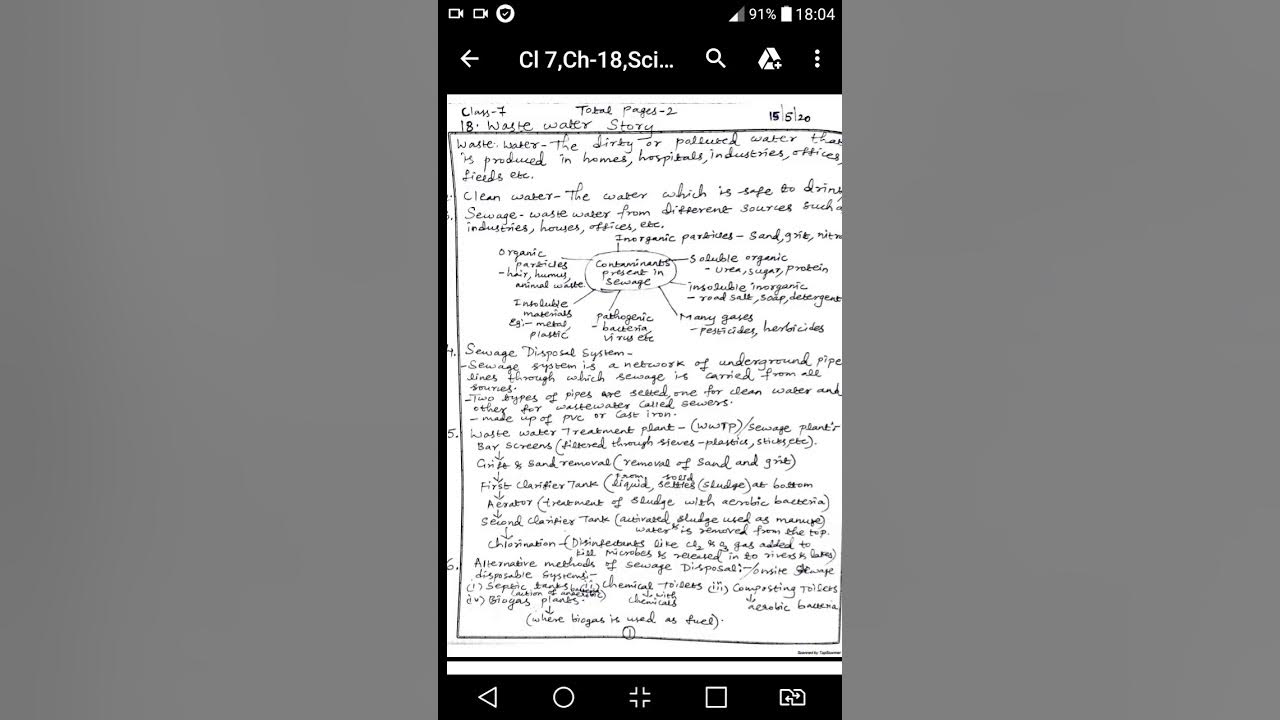 91% 18:04
Cl 7,Ch-18,Sci...
Class-7 Total Pages-2 15/5/20
18. Waste water Story
Waste water - The dirty or polluted water tha
is produced in homes, hospitals, industries, offices,
fields etc.
Clean water - The water which is safe to drin
Sewage - waste water from different sources such a
industries, houses, offices, etc.
Inorganic particles - Sand, grit, nitr
Organic
particles
- hair, humus,
animal waste
Contaminants
present in
Sewage
Soluble organic
- Urea, sugar, protein
insoluble inorganic
- road salt, soap, detergent
Insoluble
materials
Eg:- metal,
plastic
pathogenic
- bacteria,
virus etc
Many gases
- pesticides, herbicides
4. Sewage Disposal System -
- Sewage system is a network of underground pipe
lines through which sewage is carried from all
sources.
- Two types of pipes are setted, one for clean water and
other for wastewater called sewers.
- made up of PVC or Cast iron.
5. Waste water Treatment plant - (WWTP)/Sewage plant's
Bar Screens (filtered through sieves - plastics, sticks, etc).
Grit & Sand removal (removal of sand and grit)
First Clarifier Tank (from liquid, solid settles (sludge) at bottom
Aerator (treatment of sludge with aerobic bacteria)
Second Clarifier Tank (activated sludge used as manure)
water is removed from the top.
Chlorination - (Disinfectants like Cl2 & O3 gas added to
kill microbes & released in to rivers & lakes)
6. Alternative methods of Sewage Disposal:-/onsite Sewage
disposable systems:-
(i) Septic tanks (ii) Chemical Toilets (iii) Composting Toilets
(action of anaerobic)
with
chemicals
aerobic bacteria
(iv) Biogas plants.
(where biogas is used as fuel).
1
Scanned by TapScanner